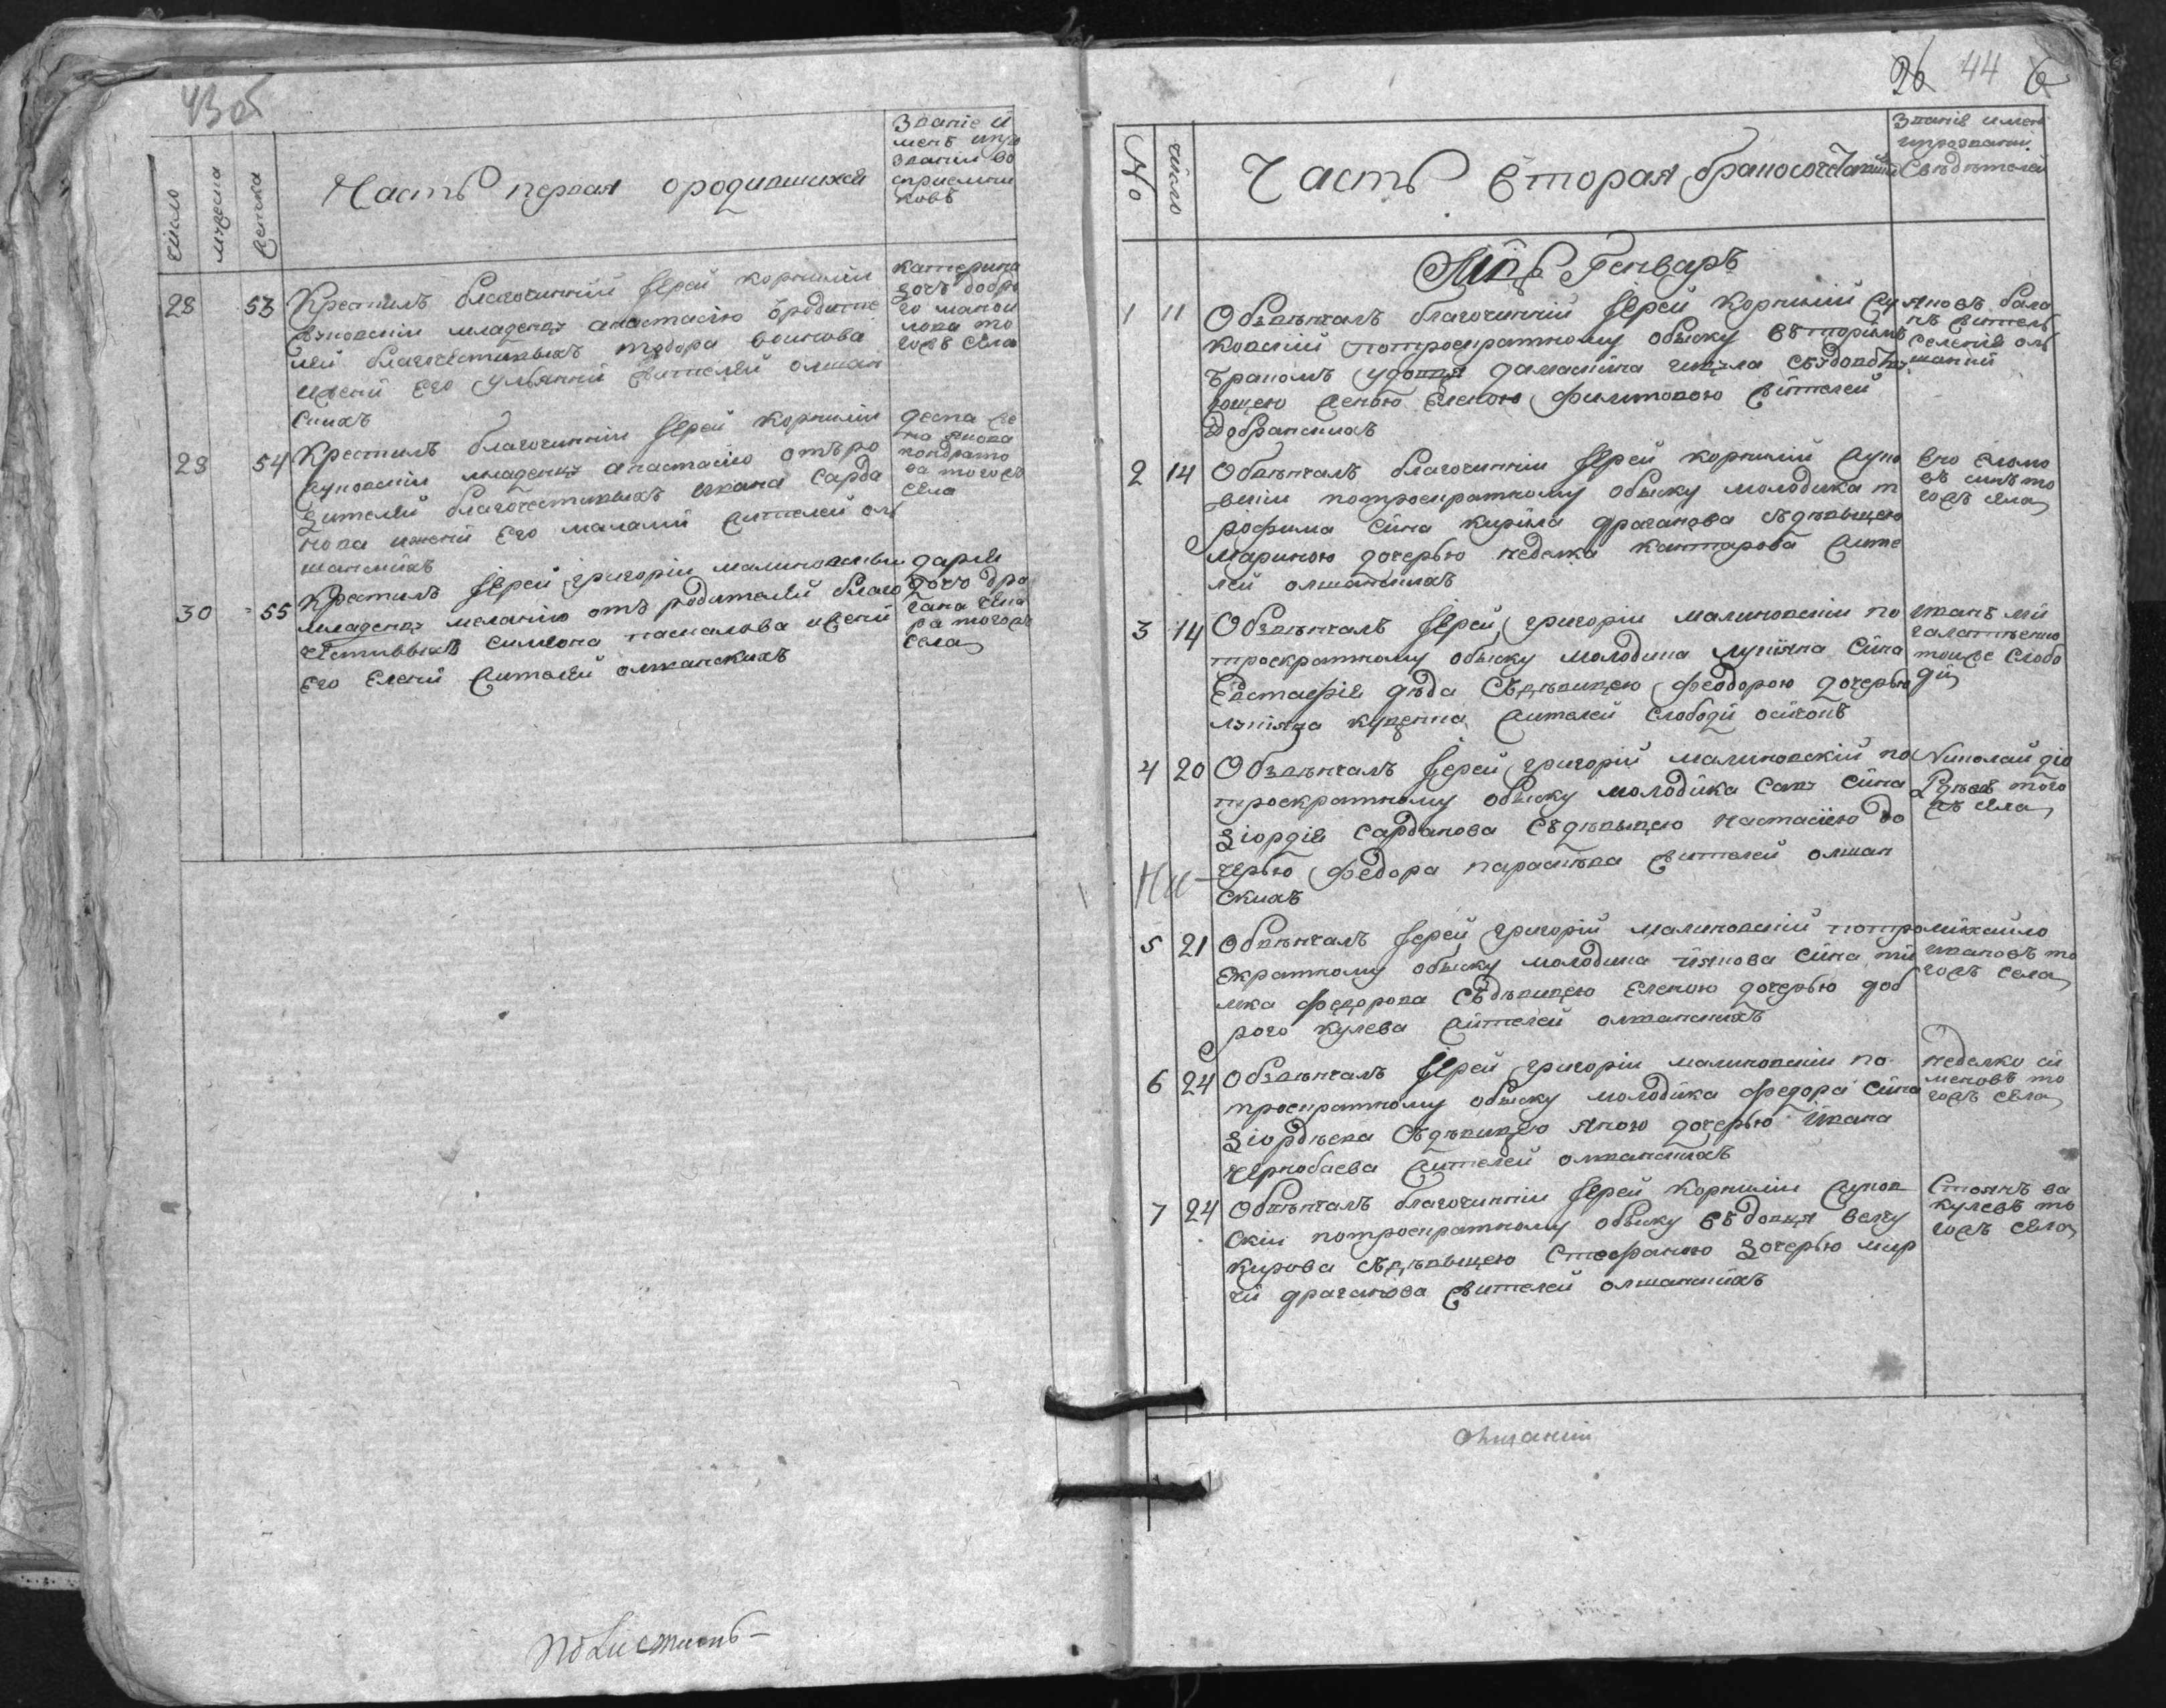 43 об
число
мужеска
женска
Часть первая ородившихся
Званіе и
менъ ипро
званіи во
сприемни
ковъ
28 53 Крестилъ благочинній Іерей корнилій
младенца анастасію
лей благочестивыхъ тодора воинова
ижени Его ульянни жителей олшан
скихъ
катерина
дочь добра
го манои
лова то
гожъ села
28 54 Крестилъ благочинній Іерей корнилій
жуковскій младенца анастасію отъ ро
дителей благочестивыхъ ивана сарда
нова ижени Его маламй жителей ол
шанскихъ
кондрато
ва тогожъ
села
30 55 Крестилъ Іерей григорій малиновскый
младенца меланію отъ родителей благо
честивыхъ симеона паскалова ижени
Его Елени жителей олшанскихъ
дарія
дочь дра
гана
тогожъ
села
Полистилъ
26 44 6
№
число
Часть Вторая браносочетавшихся
Званія имен
ипрозвани
Свѣдѣтелей
Мцъ Генваръ
1 11 Обвѣнчалъ благочинній Іерей Корнилій жу
ковскій потроекратному обыску вторымъ
бракомъ удовца дамаскина
ющею женою Еленою филиповою жителей
Добранскихъ
яновъ бала
нъ житель
селенія ол
шаний
2 14 Обвѣнчалъ благочинній Іерей корнилій жуко
вскій потроекратному обыску молодика т
рофима сина кирила драганова сѣдѣвицею
мариною дочерью неделка кантарова жите
лей олшанскихъ
въ синъ то
гожъ села
3 14 Обвѣнчалъ Іерей григорій малиновскій по
троекратному обыску молодика лукіяна сина
Евстафія дѣда Сѣдѣвицею феодорою дочерью
жителей слободи
иванъ ми
галатіенко
тоиже слобо
ди
4 20 Обвѣнчалъ Іерей григорій малиновскій по
троекратному обыску молодика сави сина
Діордія сарданова Сѣдѣвицею настасіею до
черью федора параскѣва жителей олшан
скихъ
Николай діо
рдѣевъ того
жъ села
5 21 Обвѣнчалъ Іерей григорій малиновскій потро
екратному обыску молодика якова сина ти
мка федорова Сѣдѣвицею Еленою дочерью доб
рого кулева жителей олшанскихъ
михайло
ивановъ то
гожъ села
6 24 Обвѣнчалъ Іерей григорій малиновскій по
троекратному обыску молодика федора сина
Діордѣева Сѣдѣвицею яною дочерью ивана
чернобаева жителей олшанскихъ
неделко си
меновъ то
гожъ села
7 24 Обвѣнчалъ благочинній Іерей Корнилій жуков
скій потроекратному обыску вдовця велчу
кирова сѣдѣвицею Стефаною дочерью мир
чи драганова жителей олшанскихъ
Стоянъ ва
кулевъ то
гожъ села
Ольшании